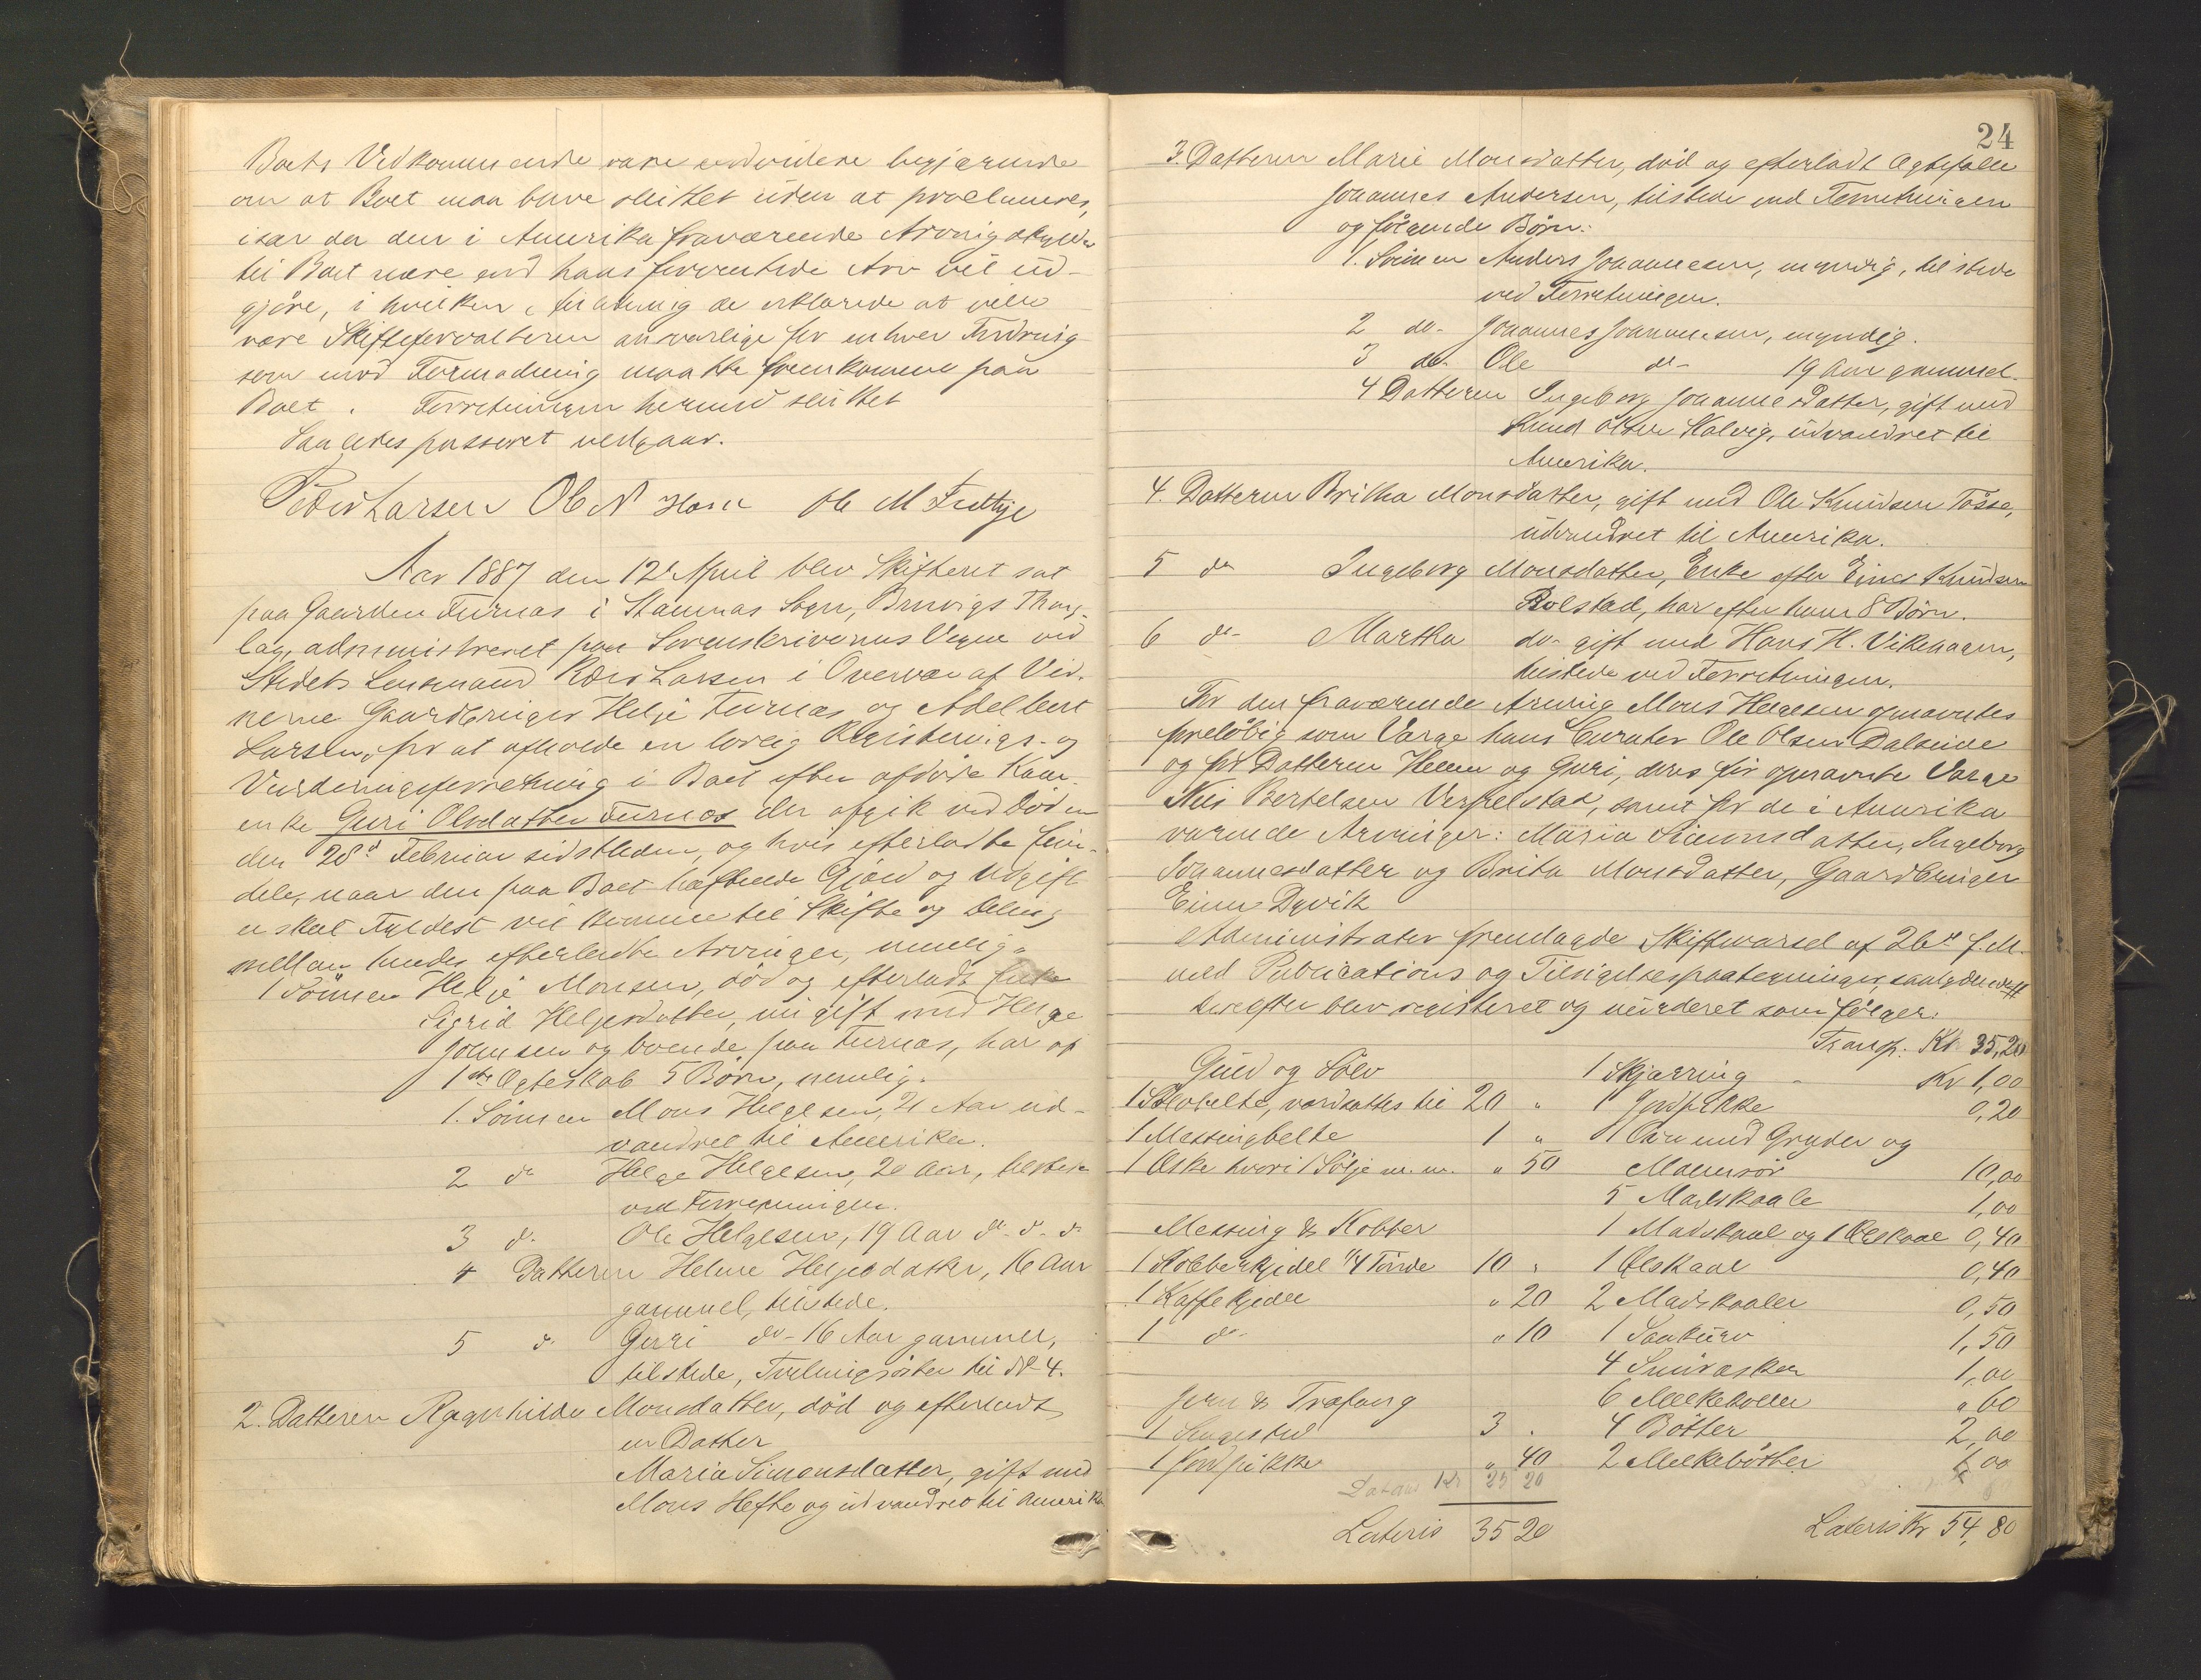 Boets Vedkommende vare endvidere begjærende
om at Boet maa blive sluttet uden at proclameres,
især da den i Amerika fraværende Arving skylder
til Boet mere end hans forventede Arv vil ud-
gjøre, i hvilken Anledning de erklærede at ville
være Skifteforvalteren ansvarlige for enhver Fordring
som mod Formodning maatte fremkomme paa
Boet. Forretningen hermed sluttet
Saaledes passeret vedgaar.
Peder Larsen Ole N Ole M
Aar 1887 den 12te April blev Skifteret sat
paa Gaarden Furnæs i Stamnæs Sogn, Bruvigs Thing-
lag, administreret paa Sorenskriverens Vegne ved
Stedets Lensmand Peder Larsen i Overvær af Vid-
nerne Gaardbruger Helje Furnæs og Adelbert
Larsen, for at afholde en lovlig Registerings- og
Vurderingsforretning i Boet efter afdøde Kaar-
enke Guri Olsdatter Furnæs der afgik ved Døden
den 28d Februar sidstleden, og hvis efterladte Eien-
dele, naar den paa Boet hæftende Gjæld og Udgift
er skeet Fyldest vil komme til Skifte og Deling
mellem hendes efterladte Arvinger, nemlig:
1 Sønnen Helje Monsen, død og efterladt Enke
Sigrid Helgesdatter, nu gift med Helge
Johnsen og boende paa Furnæs, har af
1ste Ægteskab 5 Børn, nemlig:
1. Sønnen Mons Helgesen, 21 Aar ud-
vandret til Amerika.
2 do Helge Helgesen, 20 Aar, tilstede
ved Forretningen.
3 do Ole Helgesen, 19 Aar do do do
4 Datteren Helene Helgesdatter, 16 Aar
gammel, tilstede.
5 do Guri do- 16 Aar gammel,
tilstede, Tvillingsøster til No 4.
2. Datteren Ragnhilde Monsdatter, død og efterladt
en Datter
Maria Simonsdatter, gift med
Mons Hefte og udvandret til Amerika
24
3. Datteren Marie Monsdatter, død og efterladt Ægtefælle
Johannes Andersen, tilstede ved Forretningen
og følgende Børn:
1. Sønnen Anders Johannesen, myndig, tilstede
ved Forretningen.
2 do- Johannes Johannesen, myndig.
3 do- Ole do- 19 Aar gammel.
4 Datteren Ingeborg Johannesdatter, gift med
Knud Olsen Kalvig, udvandret til
Amerika.
4. Datteren Britha Monsdatter, gift med Ole Knudsen Tøsse,
udvandret til Amerika.
5 do Ingeborg Monsdatter, Enke efter Einer Knudsen
Rolstad, har efter ham 8 Børn.
6 do- Martha do- gift med Hans H. Vikenæsen,
tilstede ved Forretningen.
For den fraværende Arving Mons Helgesen opnævntes
foreløbig som Værge hans Curator Ole Olsen Dalseide
og for Datteren Helene og Guri, deres før opnævnte Værge
Nils Bertelsen, samt for de i Amerika
værende Arvinger: Maria Simonsdatter, Ingeborg
Johannesdatter og Brita Monsdatter, Gaardbruger
Einer Dyvik
Administrator fremlagde Skiftevarsel af 26de f.M.
med Publications og Tilsigelsespaategninger, saalydende #
hvorefter blev registeret og vurderet som følger:
Transp. Kr. 35,20
Guld og Sølv
1 Sølvbelte, værdsattes til 20 "
1 Messingbelte 1 "
1 Æske hvori 1 Sølje m.m. " 50
Messing & Kobber
1 Kobberkjedel 1/4 Tønde 10 "
1 Kaffekjedel " 20
1 do- " 10
Jern & Træfang
1 3 .
1 Jerdfikke " 40
Lateris 35 20
1 Skjærring " Kr 1,00
1 0,20
1 Ovn med Gryder og
10,00
5 Madskaale 1,00
1 Madskaal og 1 Ølskaal 0,40
1 Ølskaal 0,40
2 Madskaaler 0,50
1 Saakurv 1,50
4 Smøræsker 1,00
6 Melkekoller " 60
4 Bøtter 2,00
2 Melkebøtter 1,00
Lateris Kr 54,80